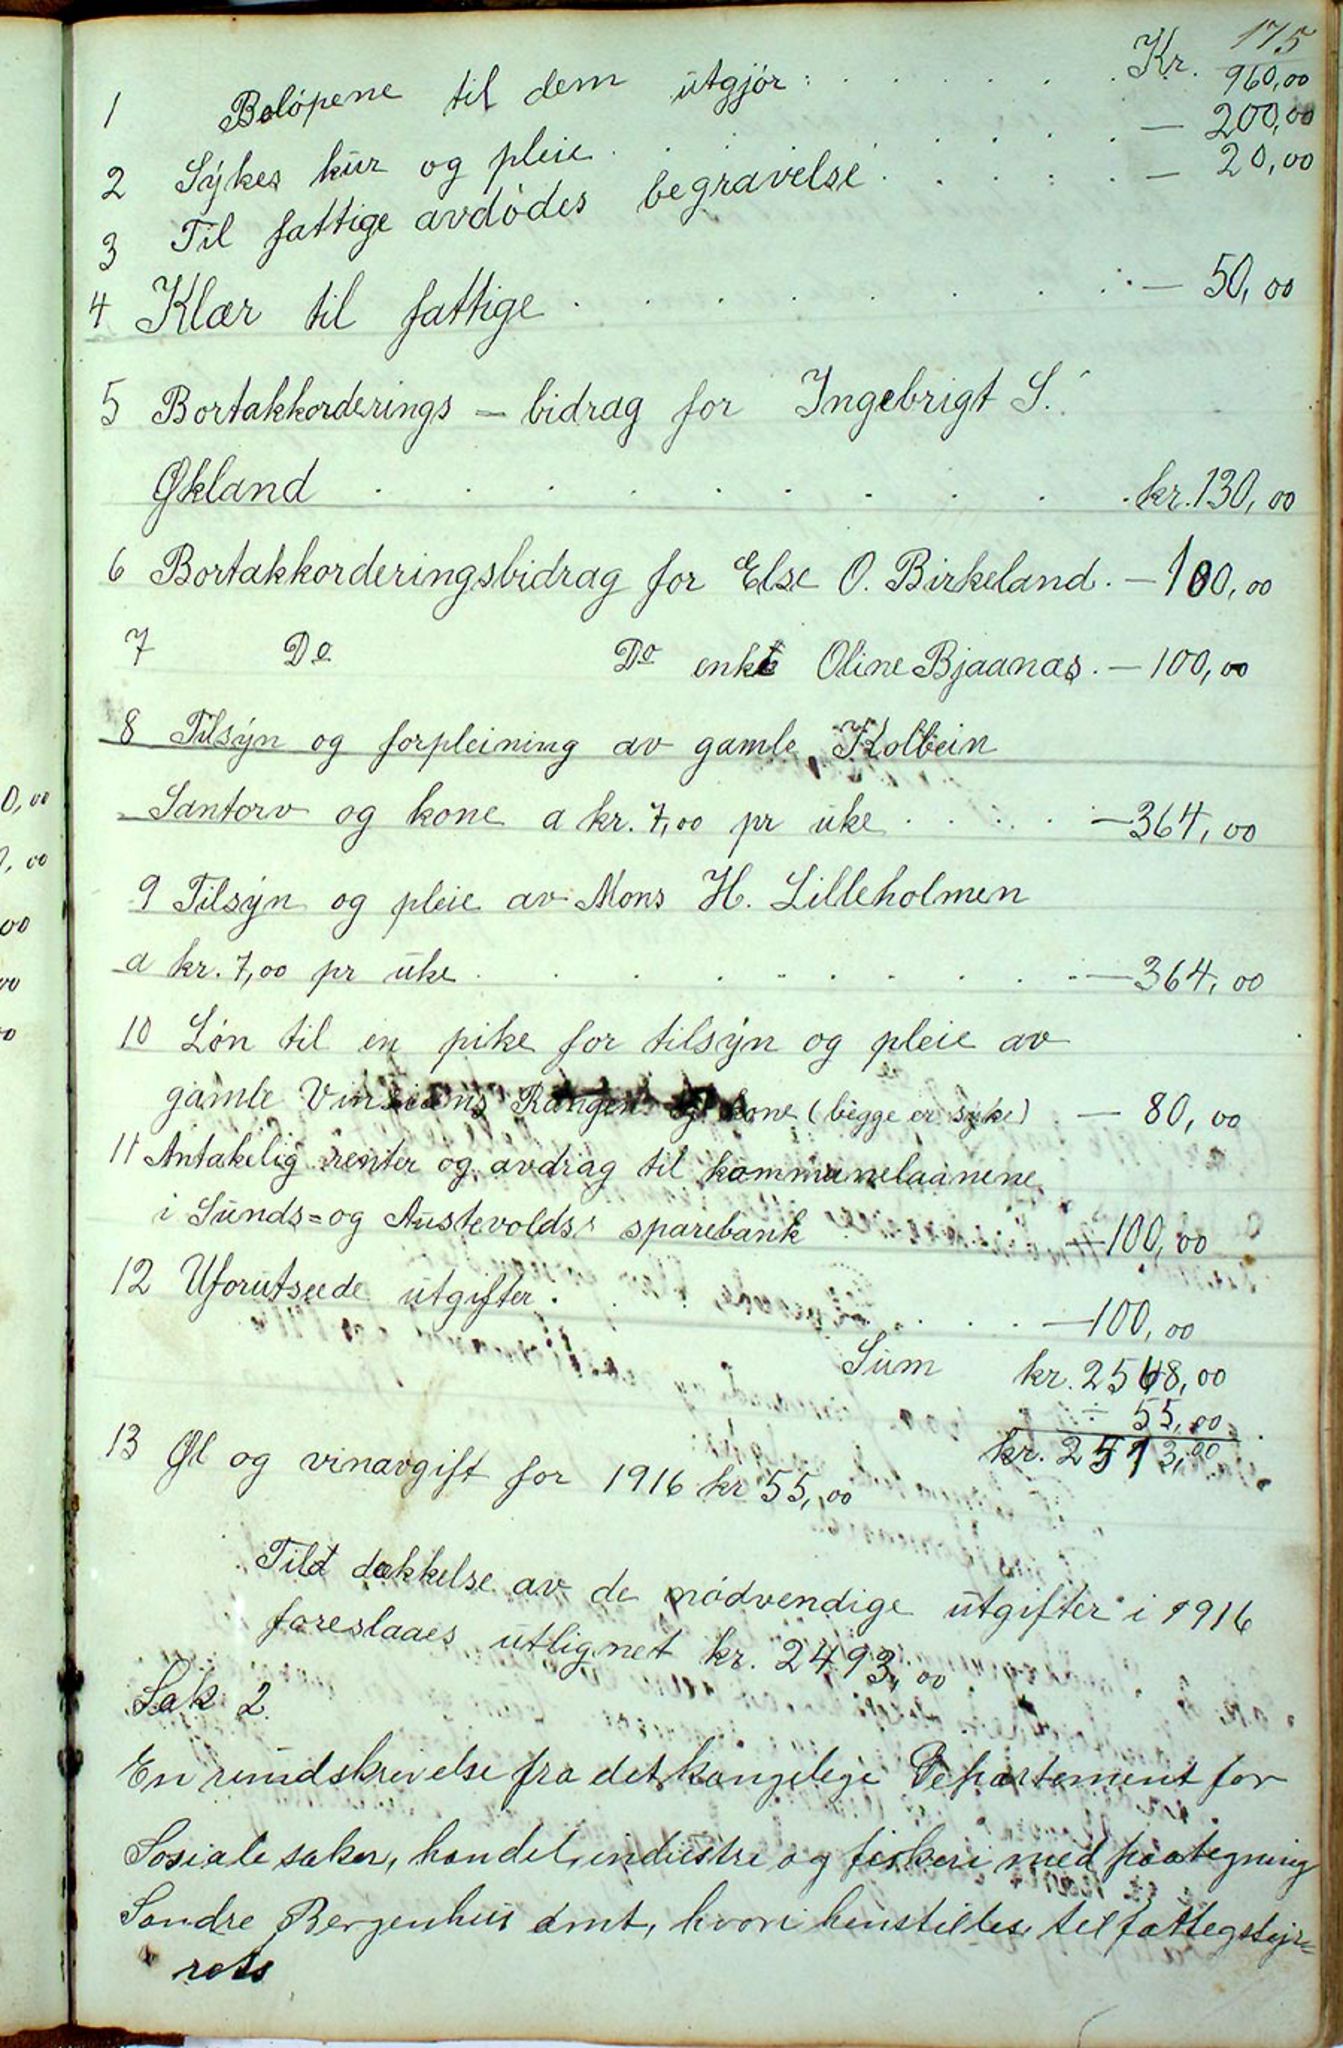 175
1 Beløpene til dem utgjør: . . . . . . Kr. 960,00
2 Sykes kur og pleie . . . . . . — 200,00
3 Til fattige avdødes begravelse . . . . . — 20,00
4 Klær til fattige . . . . . . . . — 50,00
5 Bortakkorderings - bidrag for Ingebrigt S.
Økland . . . . . . . . . . kr. 130,00
6 Bortakkorderingsbidrag for Else O. Birkeland. — 100,00
7 Do Do enke Oline Bjaanæs. — 100,00
8 Tilsyn og forpleining av gamle Kolbein
Santorv og kone a kr. 7,00 pr uke . . . . . — 364,00
9 Tilsyn og pleie av Mons H. Lilleholmen
a kr. 7,00 pr uke . . . . . . . . — 364,00
10 Løn til en pike for tilsyn og pleie av
gamle Rangen og kone (begge er syke) — 80,00
11 Antakelig renter og avdrag til kommunelaanene
i Sunds= og Austevolds sparebank — 100,00
12 Uforutseede utgifter . . . . . . . — 100,00
Sum kr. 2568,00
÷ 55,00
kr. 2513,00
13 Øl og vinavgift for 1916 kr 55,00
Till dækkelse av de nødvendige utgifter i 1916
foreslaaes utlignet kr. 2493,00
Sak 2.
En rundskrivelse fra det kongelige Departement for
Sosiale saker, handel, industri og fiskeri med paategning
Søndre Bergenhus amt, hvori henstilles til fattigstyr=
rets